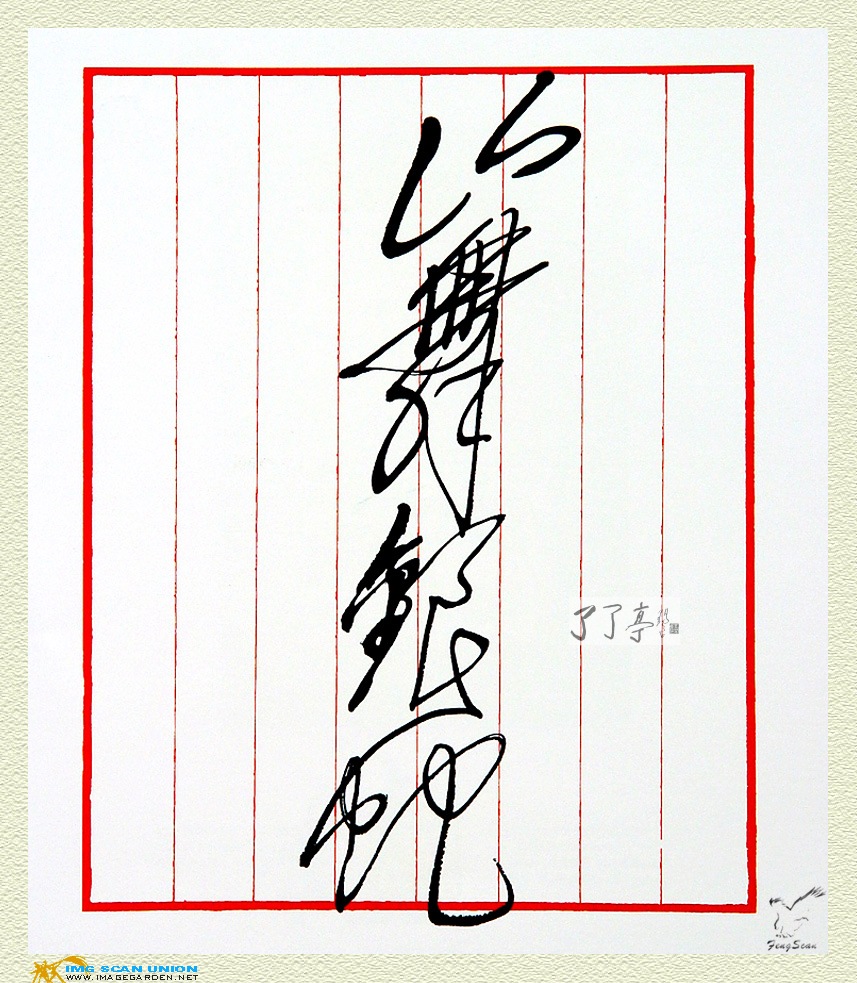 山舞銀蛇
了了亭
FengScan
IMG SCAN UNION
WWW.IMAGEGARDEN.NET